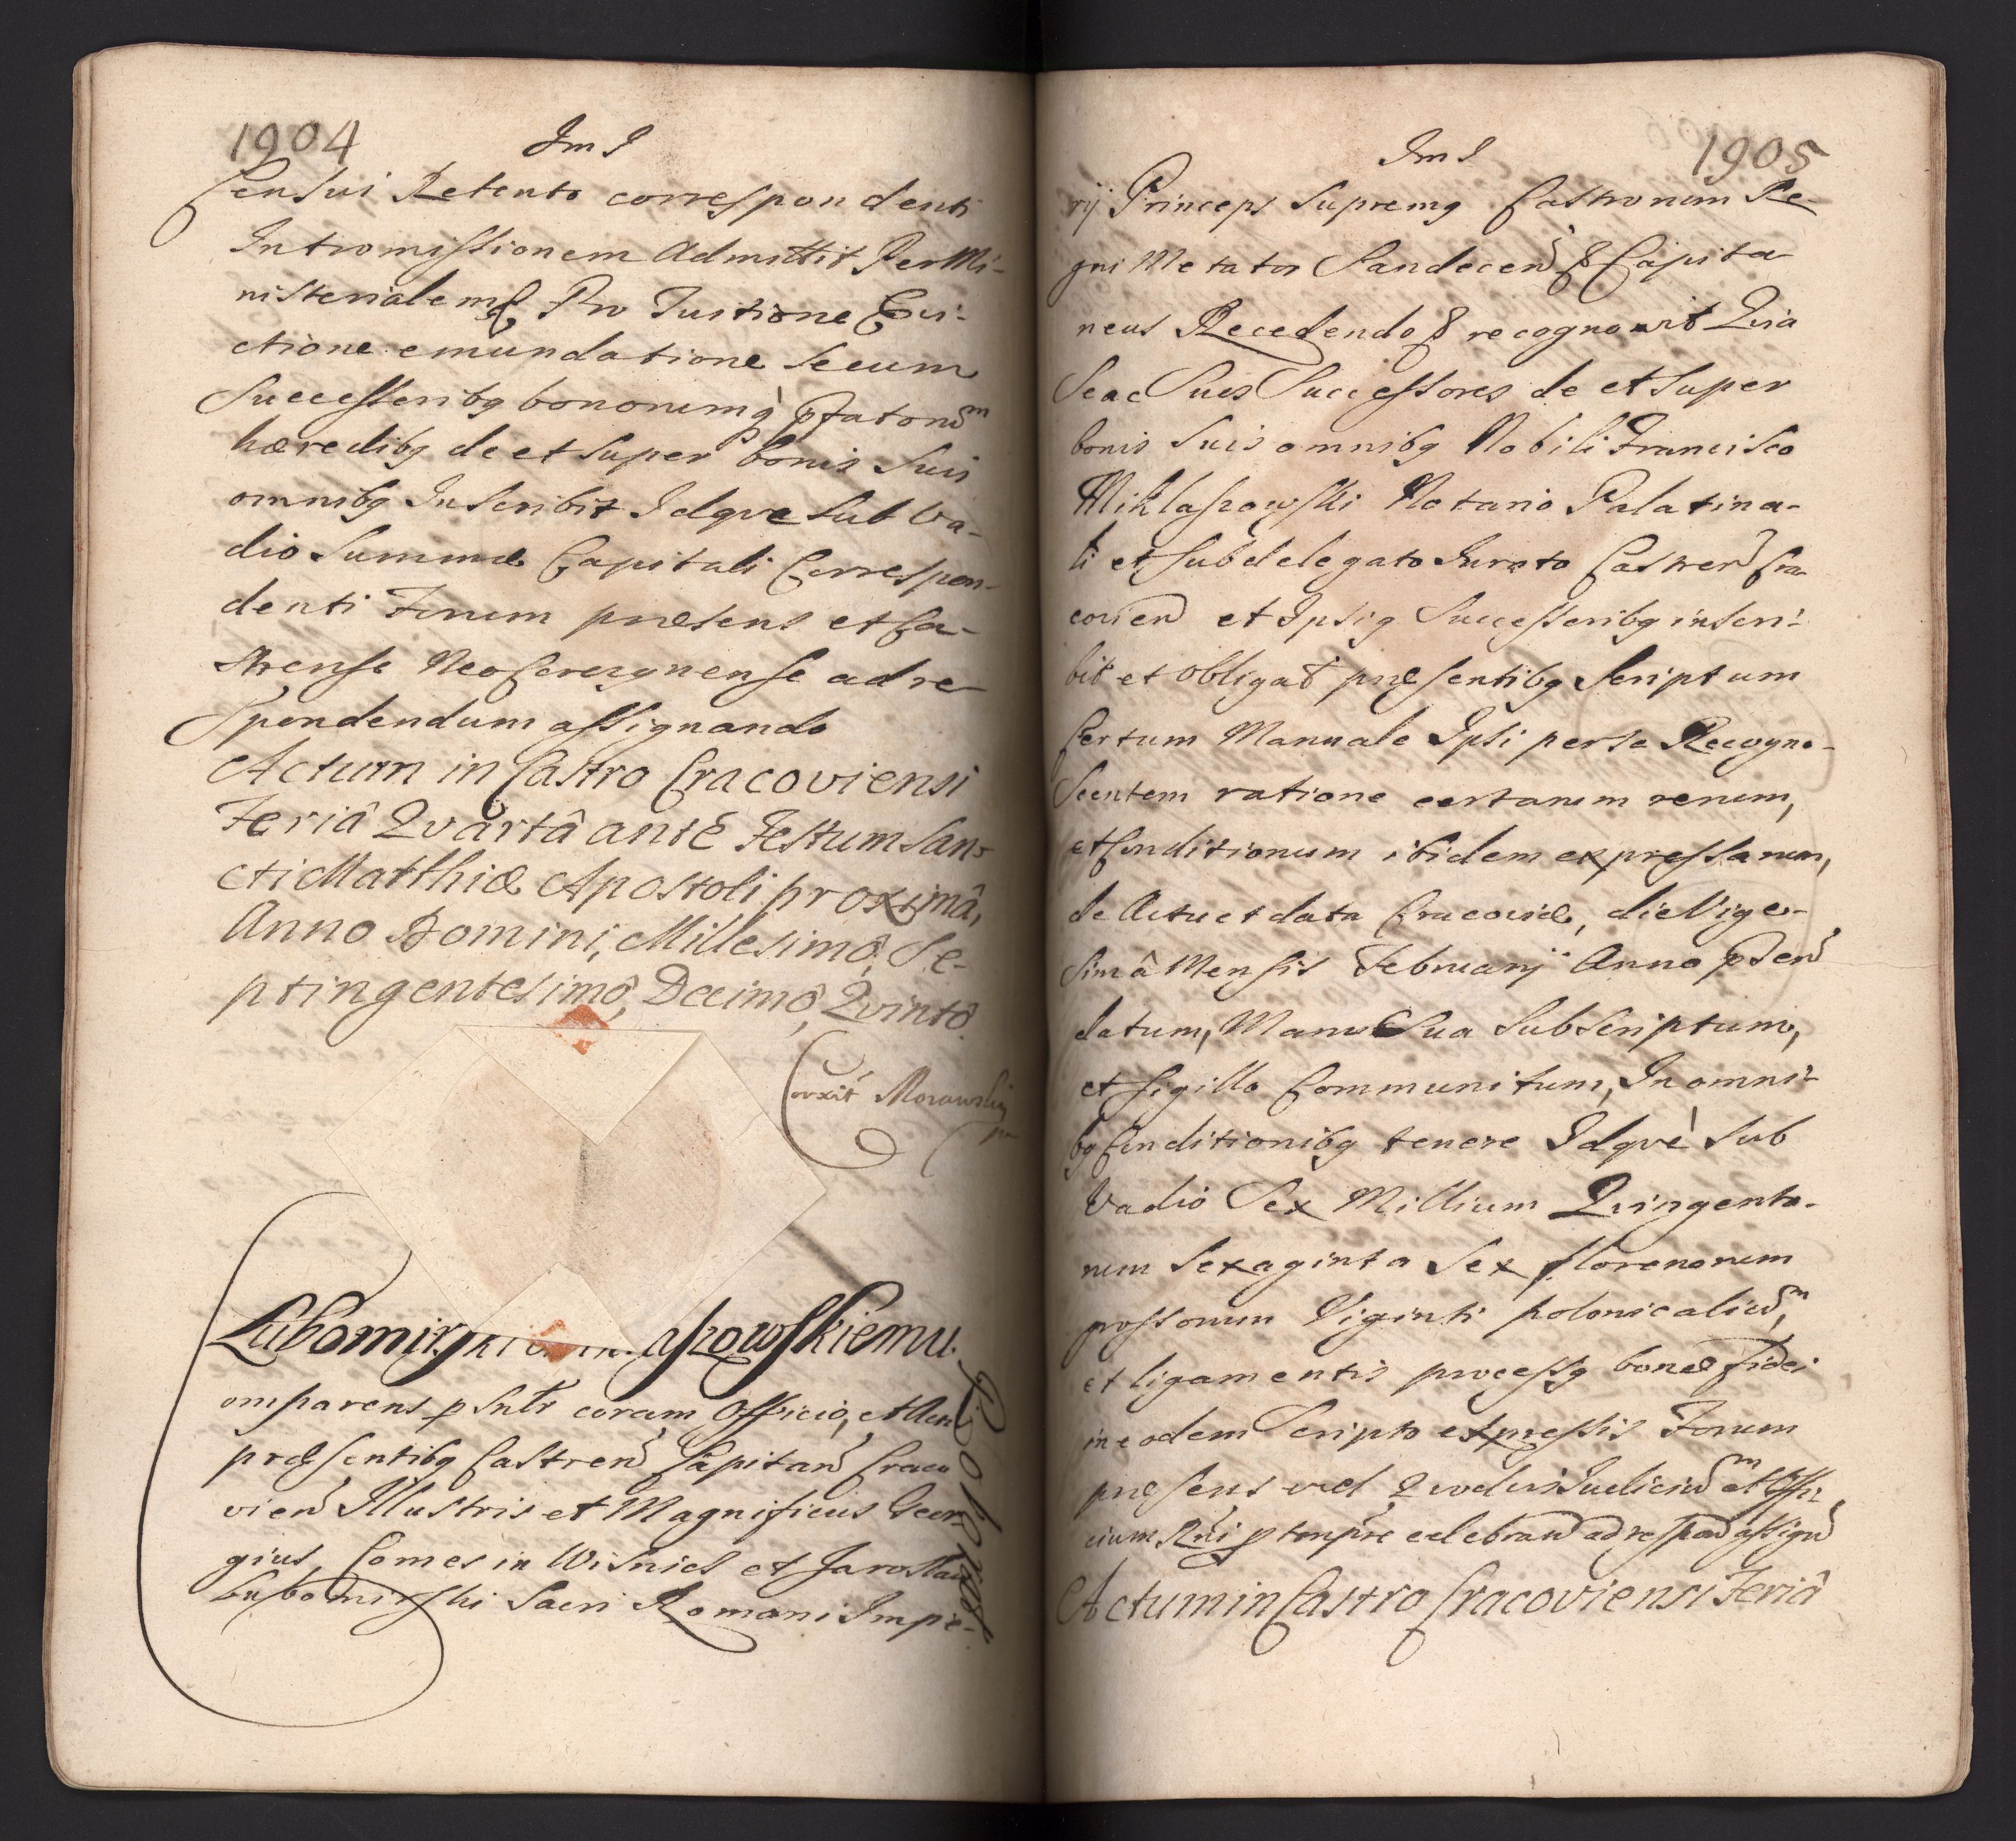 1904
Im I
Censui Retento correspondenti
Intromissionem Admittit Per Mi-
nisterialem & Pro Tuitione Evi-
ctione emundatione Secum
Successoribg bonorumq̀ pfatorũm
hæredibg de et Super bonis Suis
omnibg Inscribit Idqve Sub Va-
dio Summæ Capitali Correspon-
denti Forum præsens et Ca-
strense NeoCorczynense ad re-
Spondendum assignando
Actum in Castro Cracoviensi
Feriâ Qvartâ antè Festum San-
cti Matthiæ Apostoli proximâ,
Anno Domini, Millesimô, Se-
ptingentesimô, Decimô, Qvintô
Corxit Morawsky
Lubomirski aszowskiemu
omparens pSntr coram Officio, et Actis
præsentibg Castren Capitan Craco
vien Illustris et Magnificus Geor-
gius Comes in Wisnicz et Jaroslaw
Lubomirski Sacri Romani Impe-
Robora
Im I
1905
rij Princeps Supremg Castrorum Re-
gni Metator Sandecen & Capita
neus Recedendo & recognovit Qvia
Se ac Suos Successores de et Super
bonis Suis omnibg Nobili Francisco
Miklaszowski Notario Palatina-
li et Subdelegato Jurato Castren Cra
covien et Ipsig Successoribg inscri-
bit et obligat præsentibg Scriptum
Certum Manuale Ipsi per Se Recogno-
Scentem ratione certarum rerum,
et Conditionum ibidem expressarum,
de Actu et data Cracoviæ, die Vige-
simâ Mensis Februarij Anno pSen
datum, Manu Sua Subscriptum,
et Sigillo Communitum, In omni-
bg Conditionibg tenere Idqvè Sub
Vadio Sex Millium Qvingento-
rum Sexaginta Sex florenorum
grossorum Viginti polonicaliũm,
et ligamentis processg bonæ fidei
in eodem Scripto expressis Forum
præsens vel Qvodvis Judiciũm et Offi-
cium Rni p tempre celebran ad respon assign
Actum in Castro Cracoviensi Feriâ